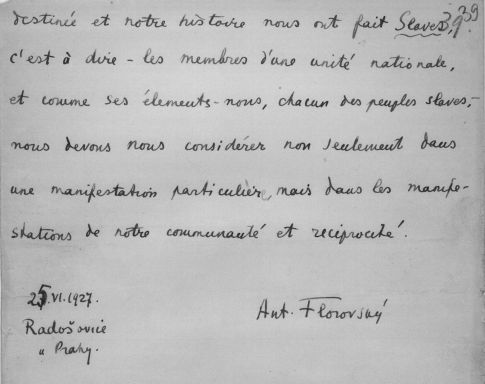 destinié et notre histoire nous ont fait Slaves,
39
c'est à dire - les membres d'une unité nationale,
et comme ses élements - nous, chacun des peuples slaves, -
nous devons nous considérer non seulement dans
une manifestation particulière, mais dans les manife-
stations de notre communauté et reciprocité.
25.VI.1927.
Radošovice
u Prahy.
Ant. Florovský